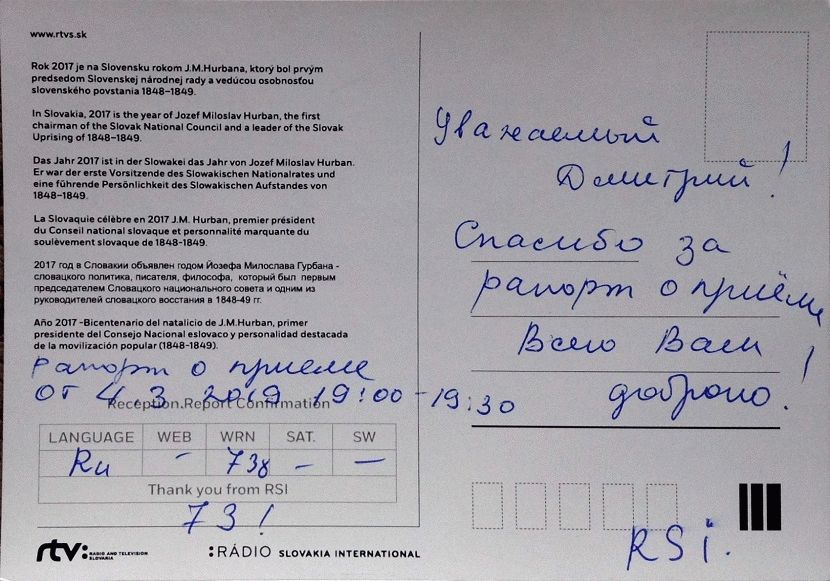 www.rtvs.sk
Rok 2017 je na Slovensku rokom J.M.Hurbana, ktorý bol prvým
predsedom Slovenskej národnej rady a vedúcou osobnosťou
slovenského povstania 1848–1849.
In Slovakia, 2017 is the year of Jozef Miloslav Hurban, the first
chairman of the Slovak National Council and a leader of the Slovak
Uprising of 1848–1849.
Das Jahr 2017 ist in der Slowakei das Jahr von Jozef Miloslav Hurban.
Er war der erste Vorsitzende des Slowakischen Nationalrates und
eine führende Persönlichkeit des Slowakischen Aufstandes von
1848–1849.
La Slovaquie célèbre en 2017 J.M. Hurban, premier président
du Conseil national slovaque et personnalité marquante du
soulèvement slovaque de 1848-1849.
2017 год в Словакии объявлен годом Йозефа Милослава Гурбана -
словацкого политика, писателя, философа, который был первым
председателем Словацкого национального совета и одним из
руководителей словацкого восстания в 1848-49 гг.
Año 2017 -Bicentenario del natalicio de J.M.Hurban, primer
presidente del Consejo Nacional eslovaco y personalidad destacada
de la movilización popular (1848-1849).
рапорт о приеме
от 4 3 2019 19:00 - 19:30
Reception Report Confirmation
LANGUAGE WEB WRN SAT. SW
Ru - 738 - -
Thank you from RSI
73!
rtv: RADIO AND TELEVISION
SLOVAKIA
:RÁDIO SLOVAKIA INTERNATIONAL
Уважаемый
Дмитрий!
Спасибо за
рапорт о приёме!
Всего Вам
доброго!
RSi.